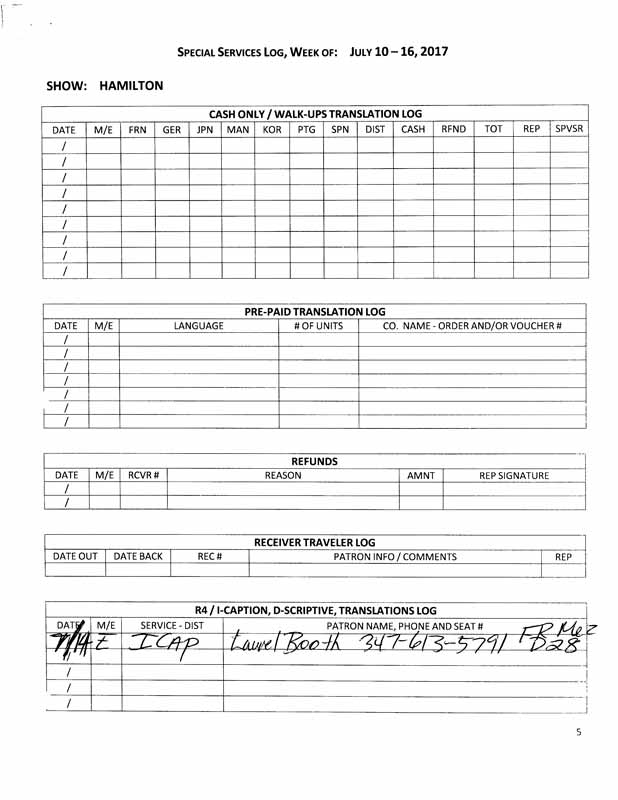 SPECIAL SERVICES LOG, WEEK OF: JULY 10 – 16, 2017
SHOW: HAMILTON
CASH ONLY / WALK-UPS TRANSLATION LOG
DATE M/E FRN GER JPN MAN KOR PTG SPN DIST CASH RFND TOT REP SPVSR
/
/
/
/
/
/
/
/
/
PRE-PAID TRANSLATION LOG
DATE M/E LANGUAGE # OF UNITS CO. NAME - ORDER AND/OR VOUCHER #
/
/
/
/
/
/
/
REFUNDS
DATE M/E RCVR # REASON AMNT REP SIGNATURE
/
/
RECEIVER TRAVELER LOG
DATE OUT DATE BACK REC # PATRON INFO / COMMENTS REP
R4 / I-CAPTION, D-SCRIPTIVE, TRANSLATIONS LOG
DATE M/E SERVICE - DIST PATRON NAME, PHONE AND SEAT #
E ICAP Laurel Booth 347-613-5791 FR Mez
D28
/
/
/
5